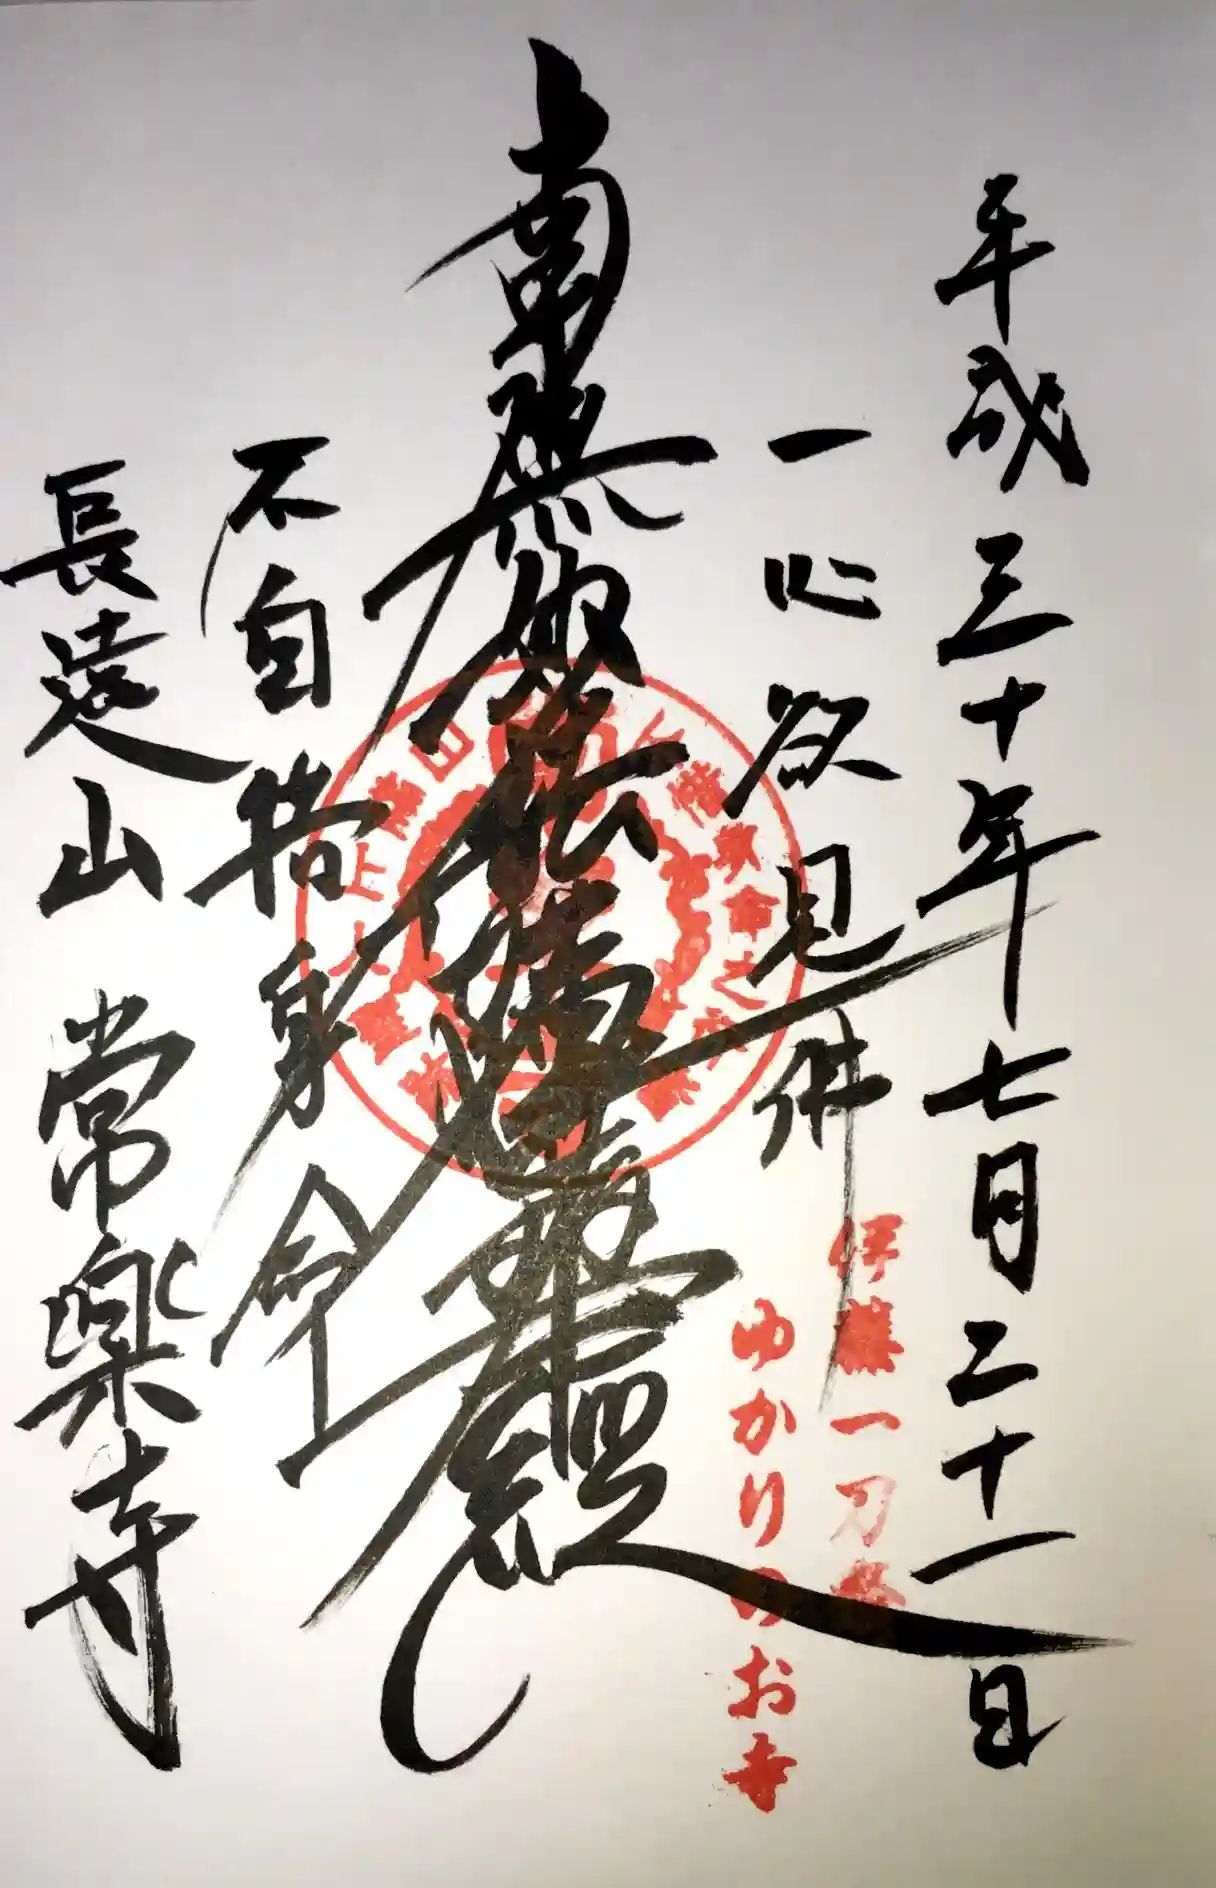 平成三十年七月二十一日
伊藤一刀斎
ゆかりのお寺
一心欲見佛
南無妙法蓮華経
不自惜身命
長遠山 常楽寺